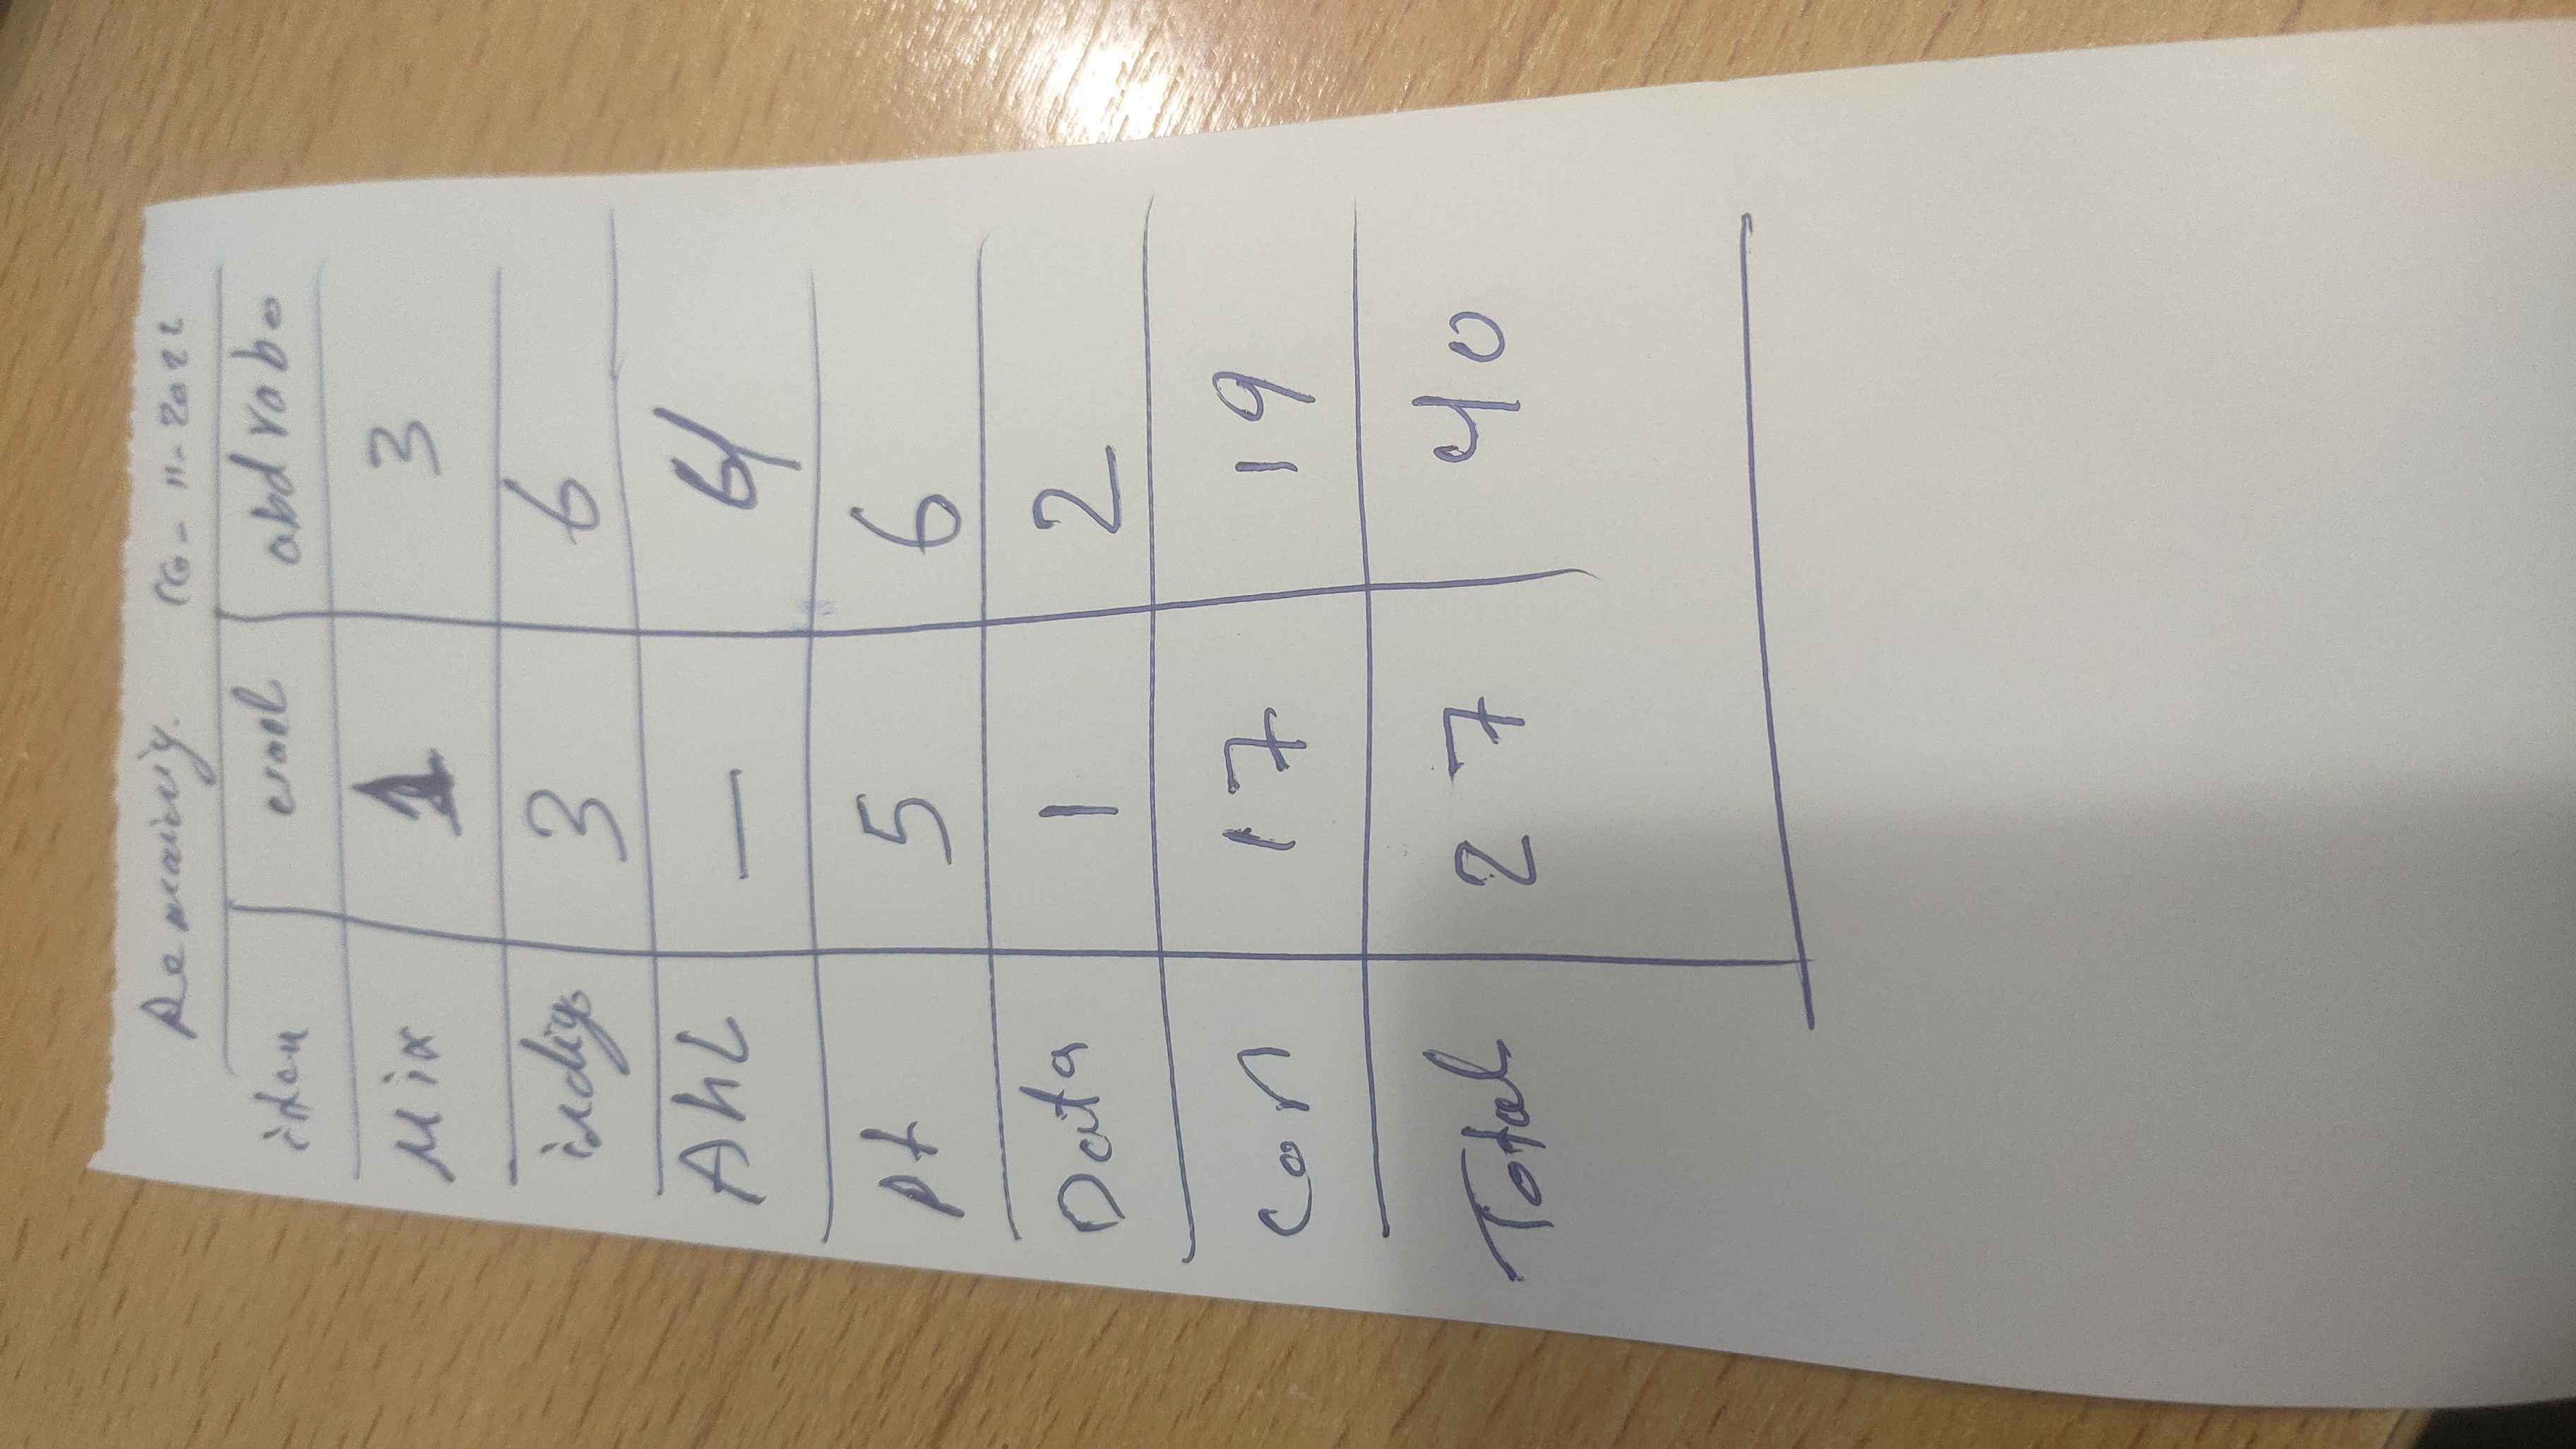 Remaining. 26-11-2022
item emel abdrabo
Mix 1 3
indigo 3 6
AhL — 4
Pt 5 6
Data 1 2
Con 17 19
Total 27 40